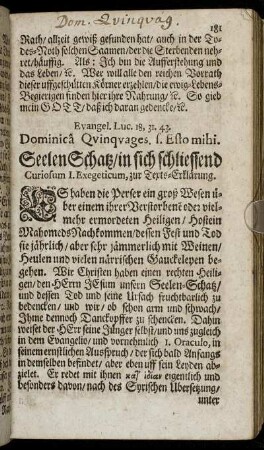 Dom. Quinquag.
181
Rath/ allzeit gewiß gefunden hat/ auch in der To-
des-Noth solchen Saamen/ der die Sterbenden neh-
ret/ häuffig. Als: Ich bin die Aufferstehung und
das Leben/ ɾc. Wer will alle den reichen Vorrath
dieser uffgeschütten Körner erzählen/ die ewig-Lebens-
Begierigen finden hier ihre Nahrung/ ɾc. So gieb
mein GOTT/ daß ich daran gedencke/ ɾc.
Evangel. Luc. 18, 31. 43.
Dominicâ Qvinqvages. s. Esto mihi.
Seelen Schatz/ in sich schliessend
Curiosum I. Exegeticum, zur Texts-Erklärung.
ES haben die Perser ein groß Wesen ü-
ber einem ihrer Verstorbenē oder viel-
mehr ermordeten Heiligen/ Hostein
Mahomeds Nachkommen/ dessen Fest und Tod
sie jährlich/ aber sehr jämmerlich mit Weinen/
Heulen und vielen närrischen Gauckeleyen be-
gehen. Wir Christen haben einen rechten Heili-
gen/ den HErrn JEsum unsern Seelen-Schatz/
und dessen Tod und seine Ursach fruchtbarlich zu
bedencken/ und wir/ ob schon arm und schwach/
Ihme dennoch Danckopffer zu schencken. Dahin
weiset der HErr seine Jünger selbst/ und uns zugleich
in dem Evangelio/ und vornehmlich 1. Oraculo, in
seinem ernstlichen Ausspruch/ der sich bald Anfangs
in demselben befindet/ aber eben uff sein Leyden ab-
zielet. Er redet mit ihnen κατ' ἰδίαν eigentlich und
besonders davon/ nach des Syrischen Übersetzung/
unter